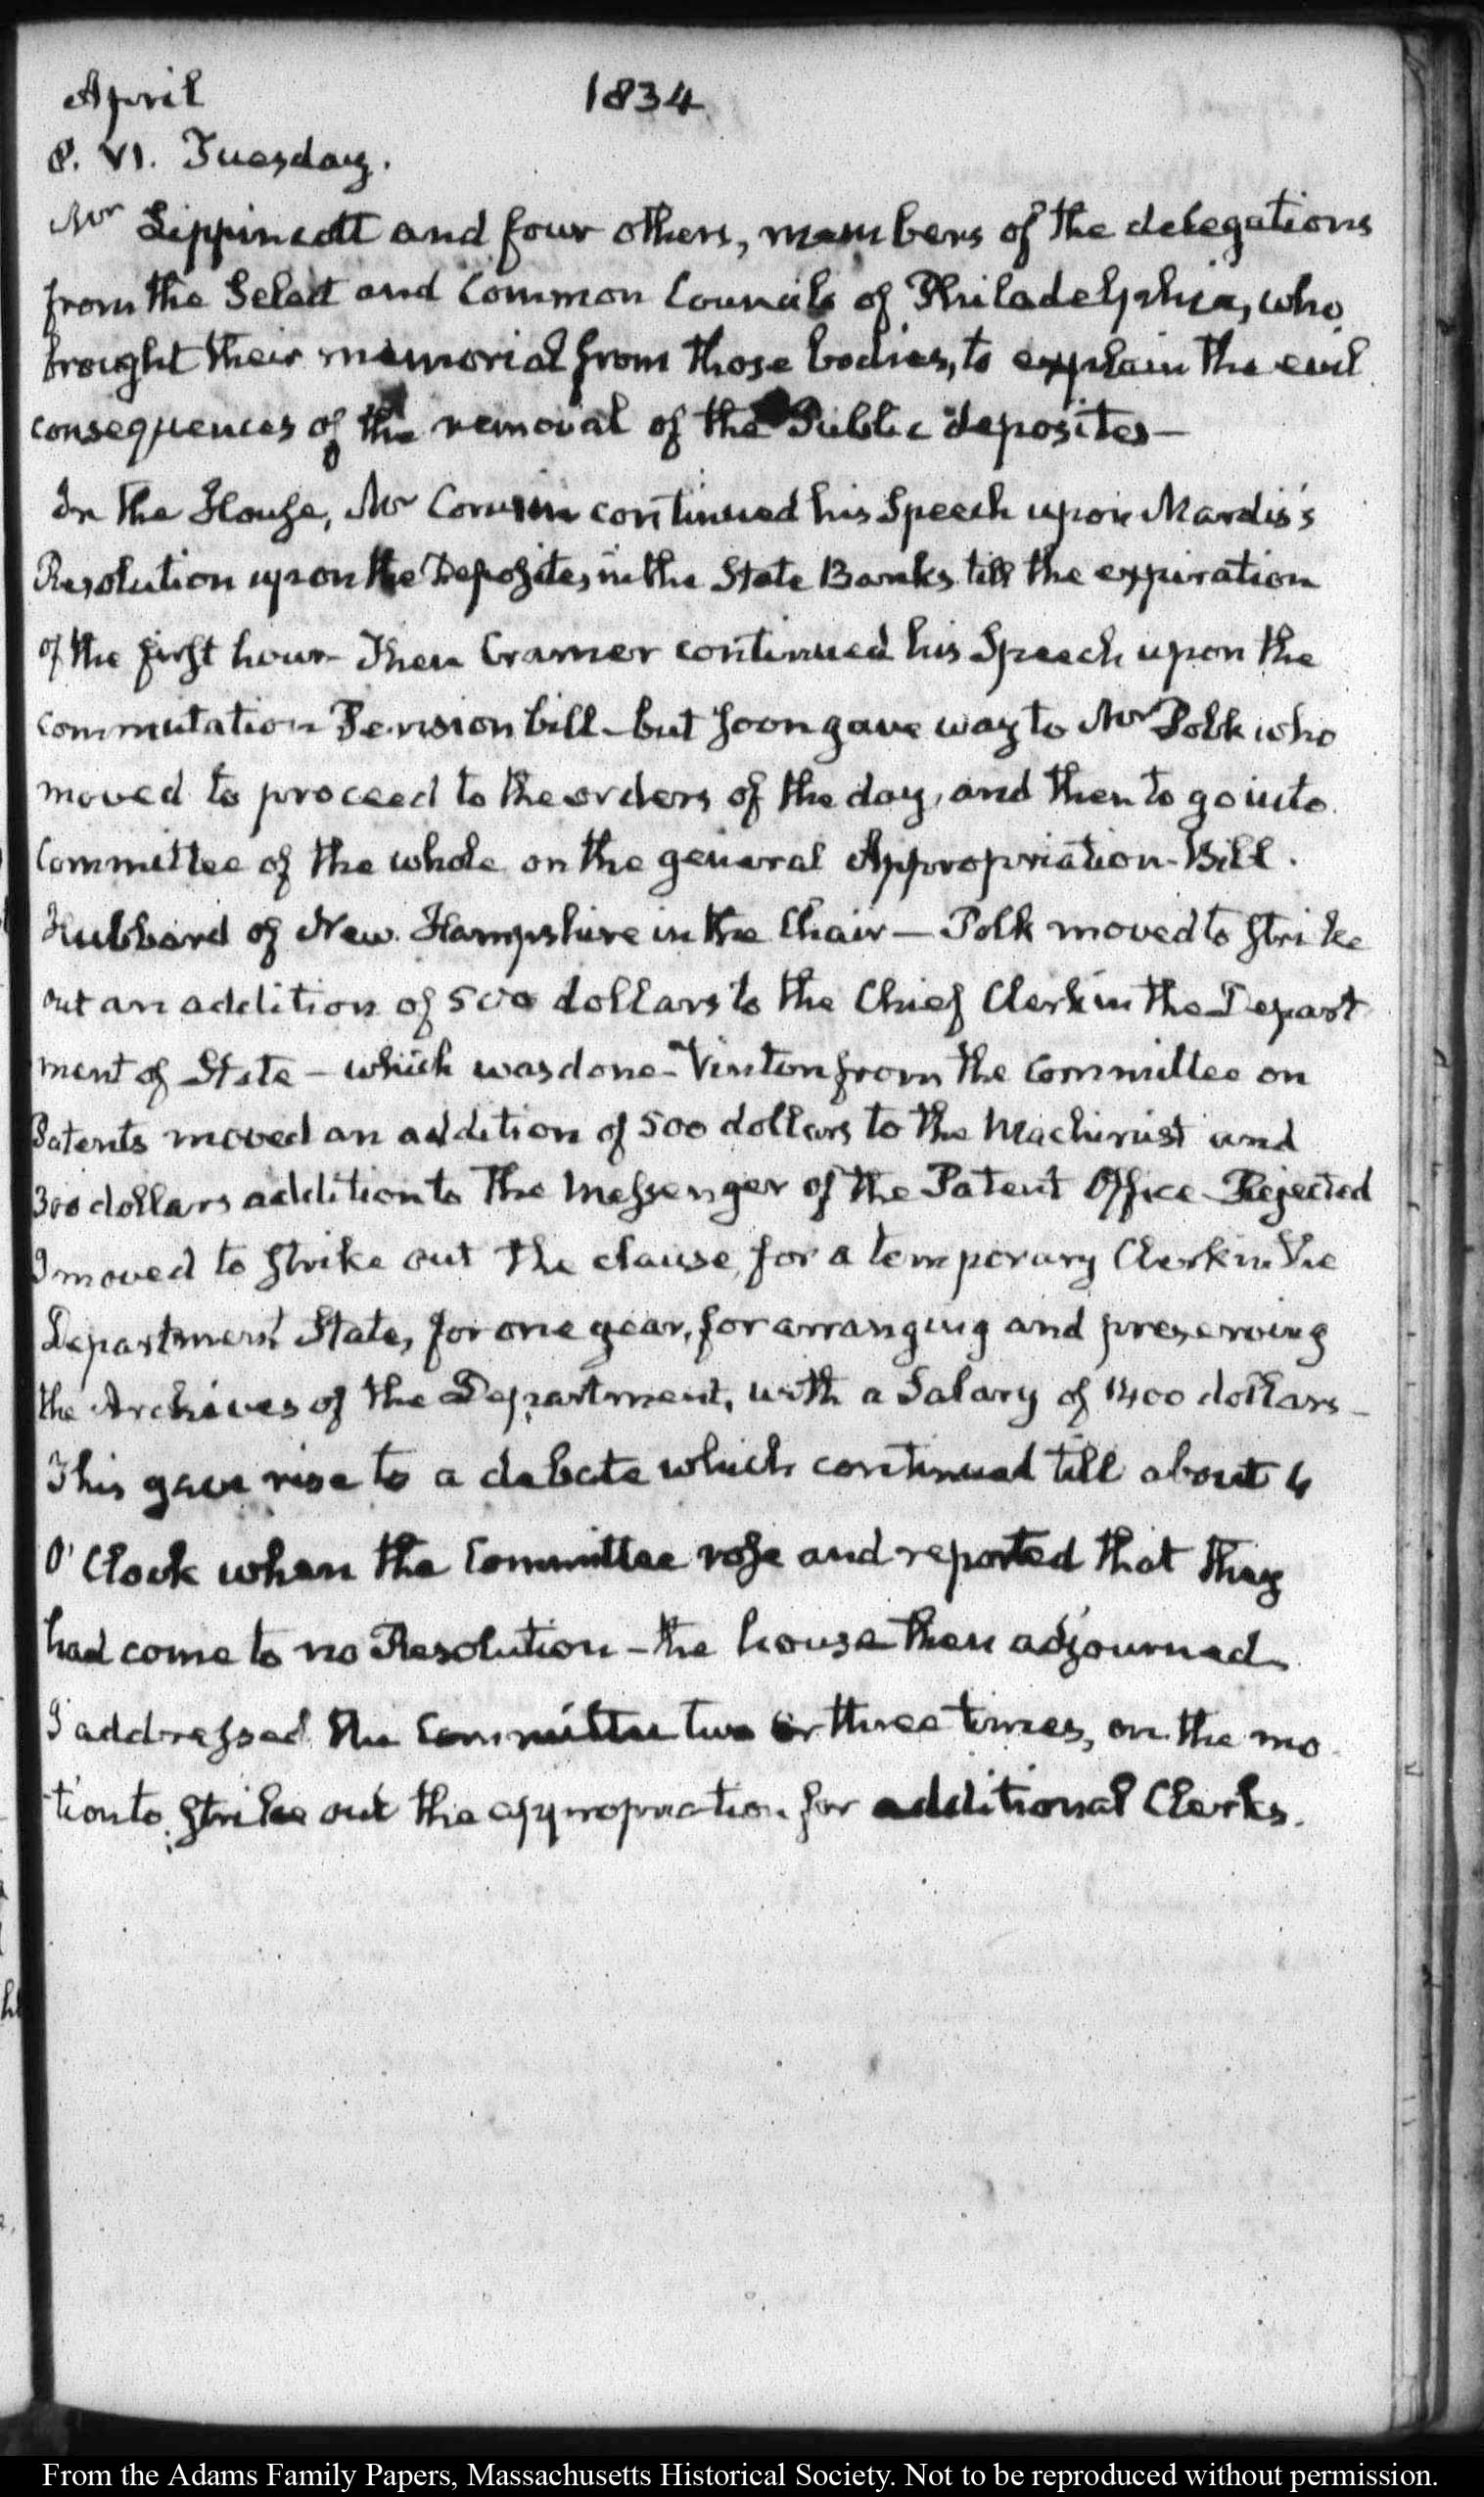 April 1834
8. VI. Tuesday.
Mr Lippincott and four others, members of the delegations
from the Select and Common Councils of Philadelphia, who
brought their memorial from those bodies, to explain the evil
consequences of the removal of the Public deposites—
In the House, Mr Corwin continued his Speech upon Mardis's
Resolution upon the Deposites in the State Banks till the expiration
of the first hour— Then Cramer continued his Speech upon the
commutation Pension bill—but soon gave way to Mr Polk who
moved to proceed to the orders of the day, and then to go into
Committee of the whole on the general Appropriation-Bill.
Hubbard of New Hampshire in the Chair— Polk moved to strike
out an addition of 500 dollars to the Chief Clerk in the Depart
ment of State — which was done— Vinton from the Committee on
Patents moved an addition of 500 dollars to the Machinist and
300 dollars addition to the Messenger of the Patent Office— Rejected
I moved to strike out the clause, for a temporary Clerk in the
Department State, for one year, for arranging and preserving
the Archives of the Department, with a Salary of 1400 dollars—
This gave rise to a debate which continued till about 4
O'Clock when the Committee rose and reported that they
had come to no Resolution — the house then adjourned
I addressed the Committee two or three times, on the mo
tion to strike out the appropriation for additional Clerks.
From the Adams Family Papers, Massachusetts Historical Society. Not to be reproduced without permission.